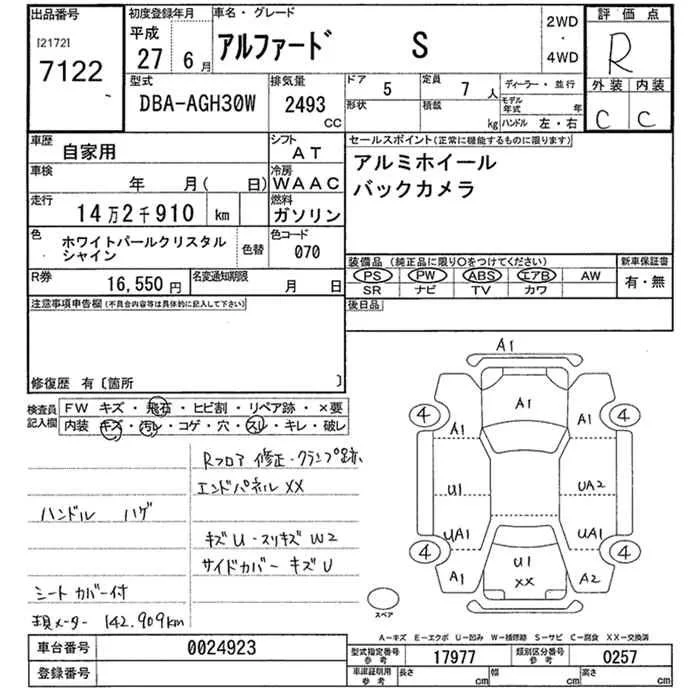 出品番号
[2172]
7122
初度登録年月
平成
27 6月
車名・グレード
アルファード S
2WD
・
4WD
評価点
R
外装 内装
C C
型式
DBA-AGH30W
排気量
2493
CC
ドア 5
形状
定員 7 人
積載 kg
ディーラー・並行
モデル年式 年
ハンドル 左・右
車歴
自家用
シフト
AT
車検
年 月( 日)
冷房
WAAC
走行
14万2千910 km
燃料
ガソリン
色
ホワイトパールクリスタル
シャイン
色替
色コード
070
R券
16,550円
名変通知期限
月 日
セールスポイント(正常に機能するものに限ります)
アルミホイール
バックカメラ
装備品(純正品に限り○をつけてください)
PS PW ABS エアB AW
SR ナビ TV カワ
新車保証書
有・無
後日品
注意事項申告欄(不具合内容等は具体的に記入して下さい)
修復歴 有〔箇所 〕
検査員
記入欄
FW キズ・飛石・ヒビ割・リペア跡・×要
内装 キズ・汚レ・コゲ・穴・スレ・キレ・破レ
Rフロア修正・クランプ跡
エンドパネルXX
ハンドル ハゲ
キズU・スリキズW2
サイドカバー キズU
シートカバー付
現メーター 142,909km
A1
A1
4
4
A1
A1
U1
UA2
UA1
UA1
4
4
A1
U1
XX
A2
スペア
A-キズ E-エクボ U-凹み W-補修跡 S-サビ C-腐食 XX-交換済
車台番号
0024923
登録番号
型式指定番号
参考
17977
類別区分番号
参考
0257
車庫証明用
参考
長さ cm
幅 cm
高さ cm